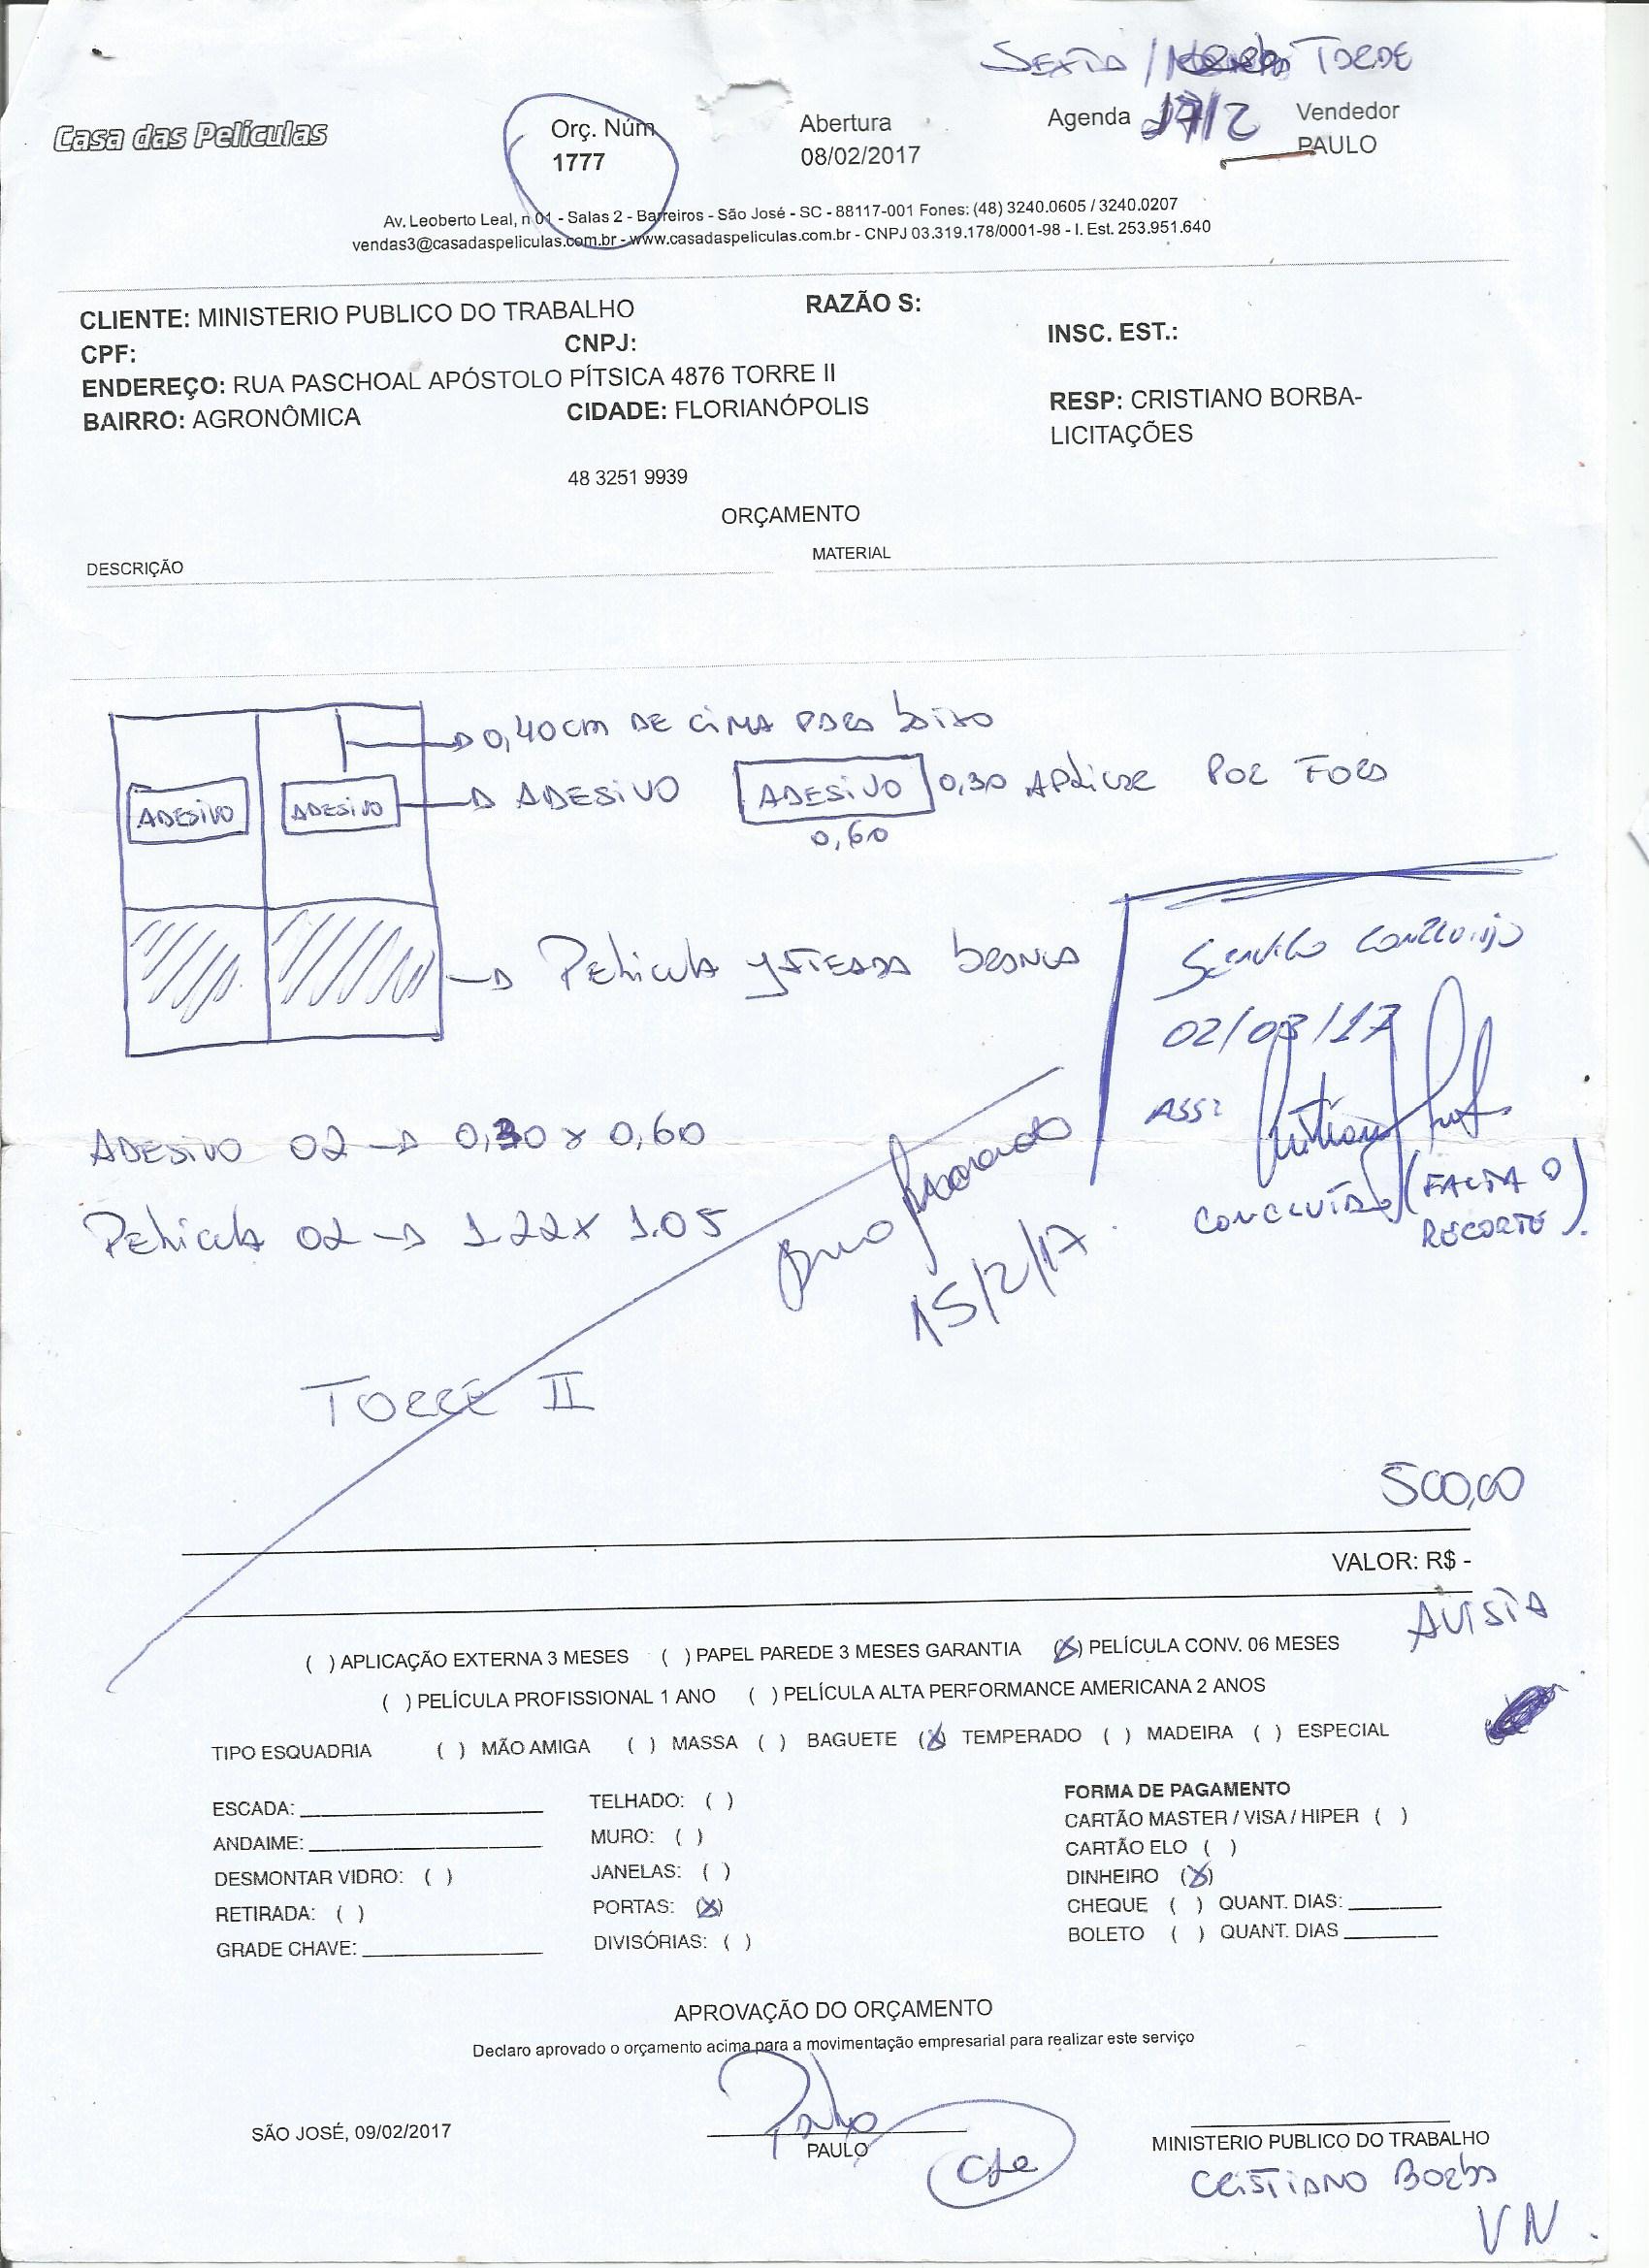 SEXTA / TARDE
Casa das Películas
Orç. Núm
1777
Abertura
08/02/2017
Agenda 17/2
Vendedor
PAULO
Av. Leoberto Leal, n 01 - Salas 2 - Barreiros - São José - SC - 88117-001 Fones: (48) 3240.0605 / 3240.0207
vendas3@casadaspeliculas.com.br - www.casadaspeliculas.com.br - CNPJ 03.319.178/0001-98 - I. Est. 253.951.640
CLIENTE: MINISTERIO PUBLICO DO TRABALHO RAZÃO S:
CPF: CNPJ: INSC. EST.:
ENDEREÇO: RUA PASCHOAL APÓSTOLO PÍTSICA 4876 TORRE II
BAIRRO: AGRONÔMICA CIDADE: FLORIANÓPOLIS RESP: CRISTIANO BORBA-
LICITAÇÕES
48 3251 9939
ORÇAMENTO
DESCRIÇÃO MATERIAL
0,40cm DE CIMA PARA BAIXO
ADESIVO ADESIVO ADESIVO ADESIVO 0,30 APLICAR POR FORA
0,60
Pelicula JATEADA BRANCA
Serviço concluido
02/03/17
ASS:
CONCLUÍDO (FALTA O
RECORTE).
ADESIVO 02 → 0,30 x 0,60
Pelicula 02 → 1.22 x 1.05
15/2/17
TORRE II
500,00
VALOR: R$ -
AVISTA
( ) APLICAÇÃO EXTERNA 3 MESES ( ) PAPEL PAREDE 3 MESES GARANTIA (X) PELÍCULA CONV. 06 MESES
( ) PELÍCULA PROFISSIONAL 1 ANO ( ) PELÍCULA ALTA PERFORMANCE AMERICANA 2 ANOS
TIPO ESQUADRIA ( ) MÃO AMIGA ( ) MASSA ( ) BAGUETE (X) TEMPERADO ( ) MADEIRA ( ) ESPECIAL
ESCADA: TELHADO: ( ) FORMA DE PAGAMENTO
CARTÃO MASTER / VISA / HIPER ( )
ANDAIME: MURO: ( ) CARTÃO ELO ( )
DESMONTAR VIDRO: ( ) JANELAS: ( ) DINHEIRO (X)
RETIRADA: ( ) PORTAS: (X) CHEQUE ( ) QUANT. DIAS:
GRADE CHAVE: DIVISÓRIAS: ( ) BOLETO ( ) QUANT. DIAS
APROVAÇÃO DO ORÇAMENTO
Declaro aprovado o orçamento acima para a movimentação empresarial para realizar este serviço
Paulo
SÃO JOSÉ, 09/02/2017 PAULO MINISTERIO PUBLICO DO TRABALHO
CRISTIANO BORBA
VN.